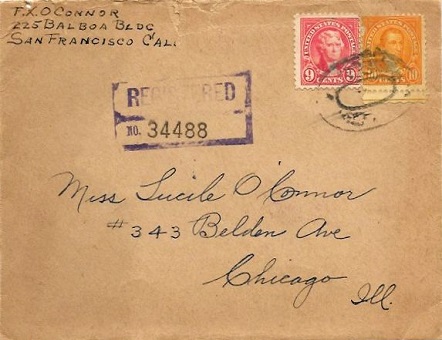 F.X. O'CONNOR
225 BALBOA BLDG
SAN FRANCISCO CAL.
UNITED STATES POSTAGE
9 CENTS 9
UNITED STATES POSTAGE
10 CENTS 10
REGISTERED
NO. 34488
Miss Lucile O'Connor
#343 Belden Ave
Chicago
Ill.